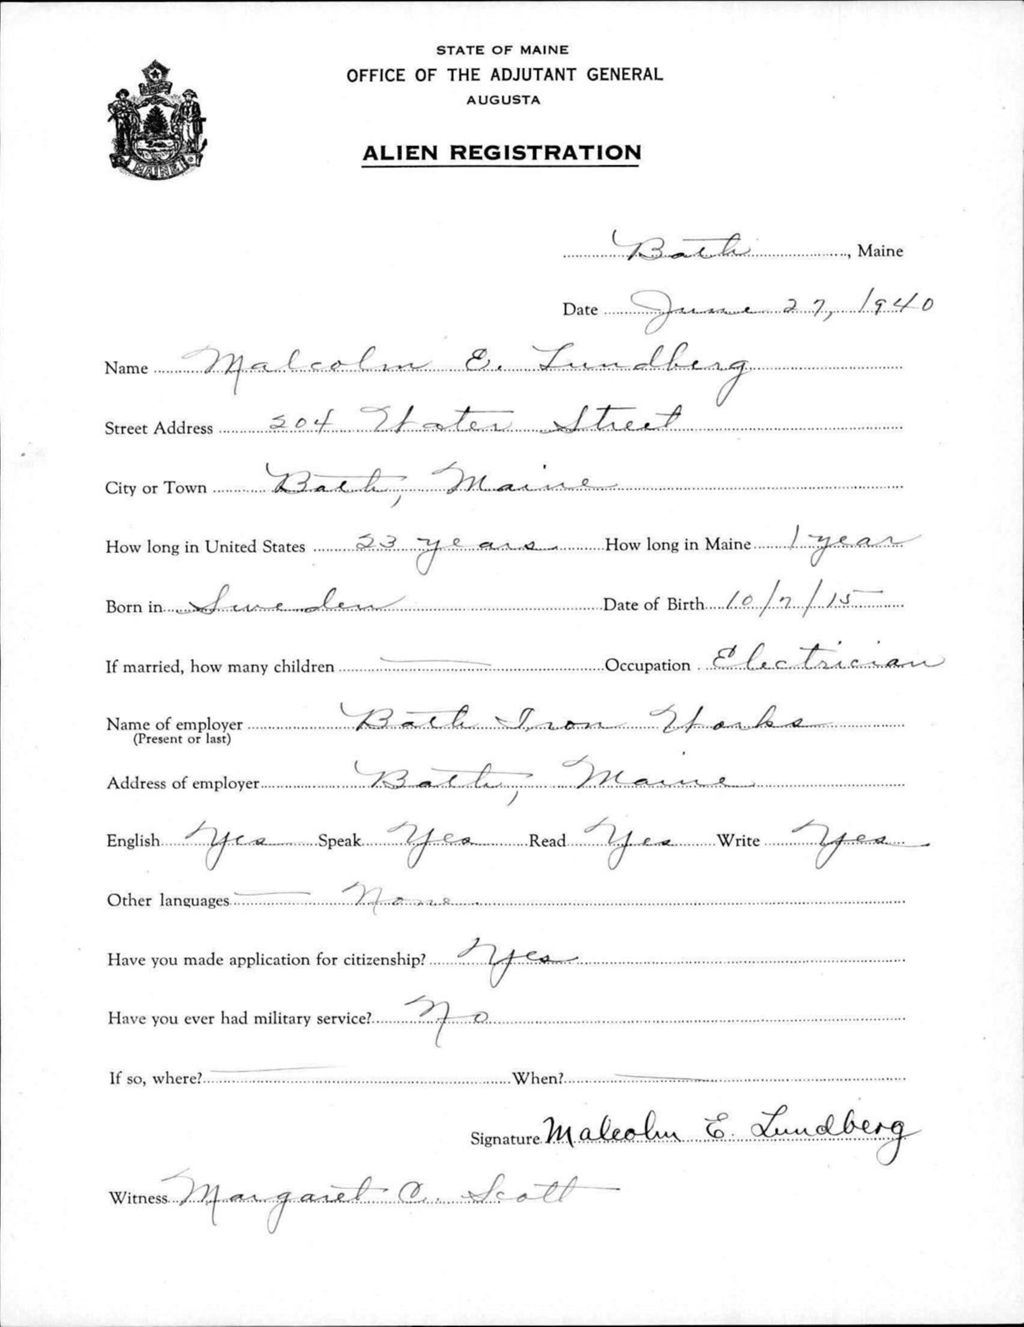 STATE OF MAINE
OFFICE OF THE ADJUTANT GENERAL
AUGUSTA
ALIEN REGISTRATION
MAINE
Bath, Maine
Date June 27, 1940
Name Malcolm E. Lundberg
Street Address 204 Water Street
City or Town Bath, Maine
How long in United States 23 years How long in Maine 1 year
Born in Sweden Date of Birth 10/7/15
If married, how many children Occupation Electrician
Name of employer Bath Iron Works
(Present or last)
Address of employer Bath, Maine
English Yes Speak Yes Read Yes Write Yes
Other languages None
Have you made application for citizenship? Yes
Have you ever had military service? No
If so, where? When?
Signature Malcolm E. Lundberg
Witness Margaret C. Scott